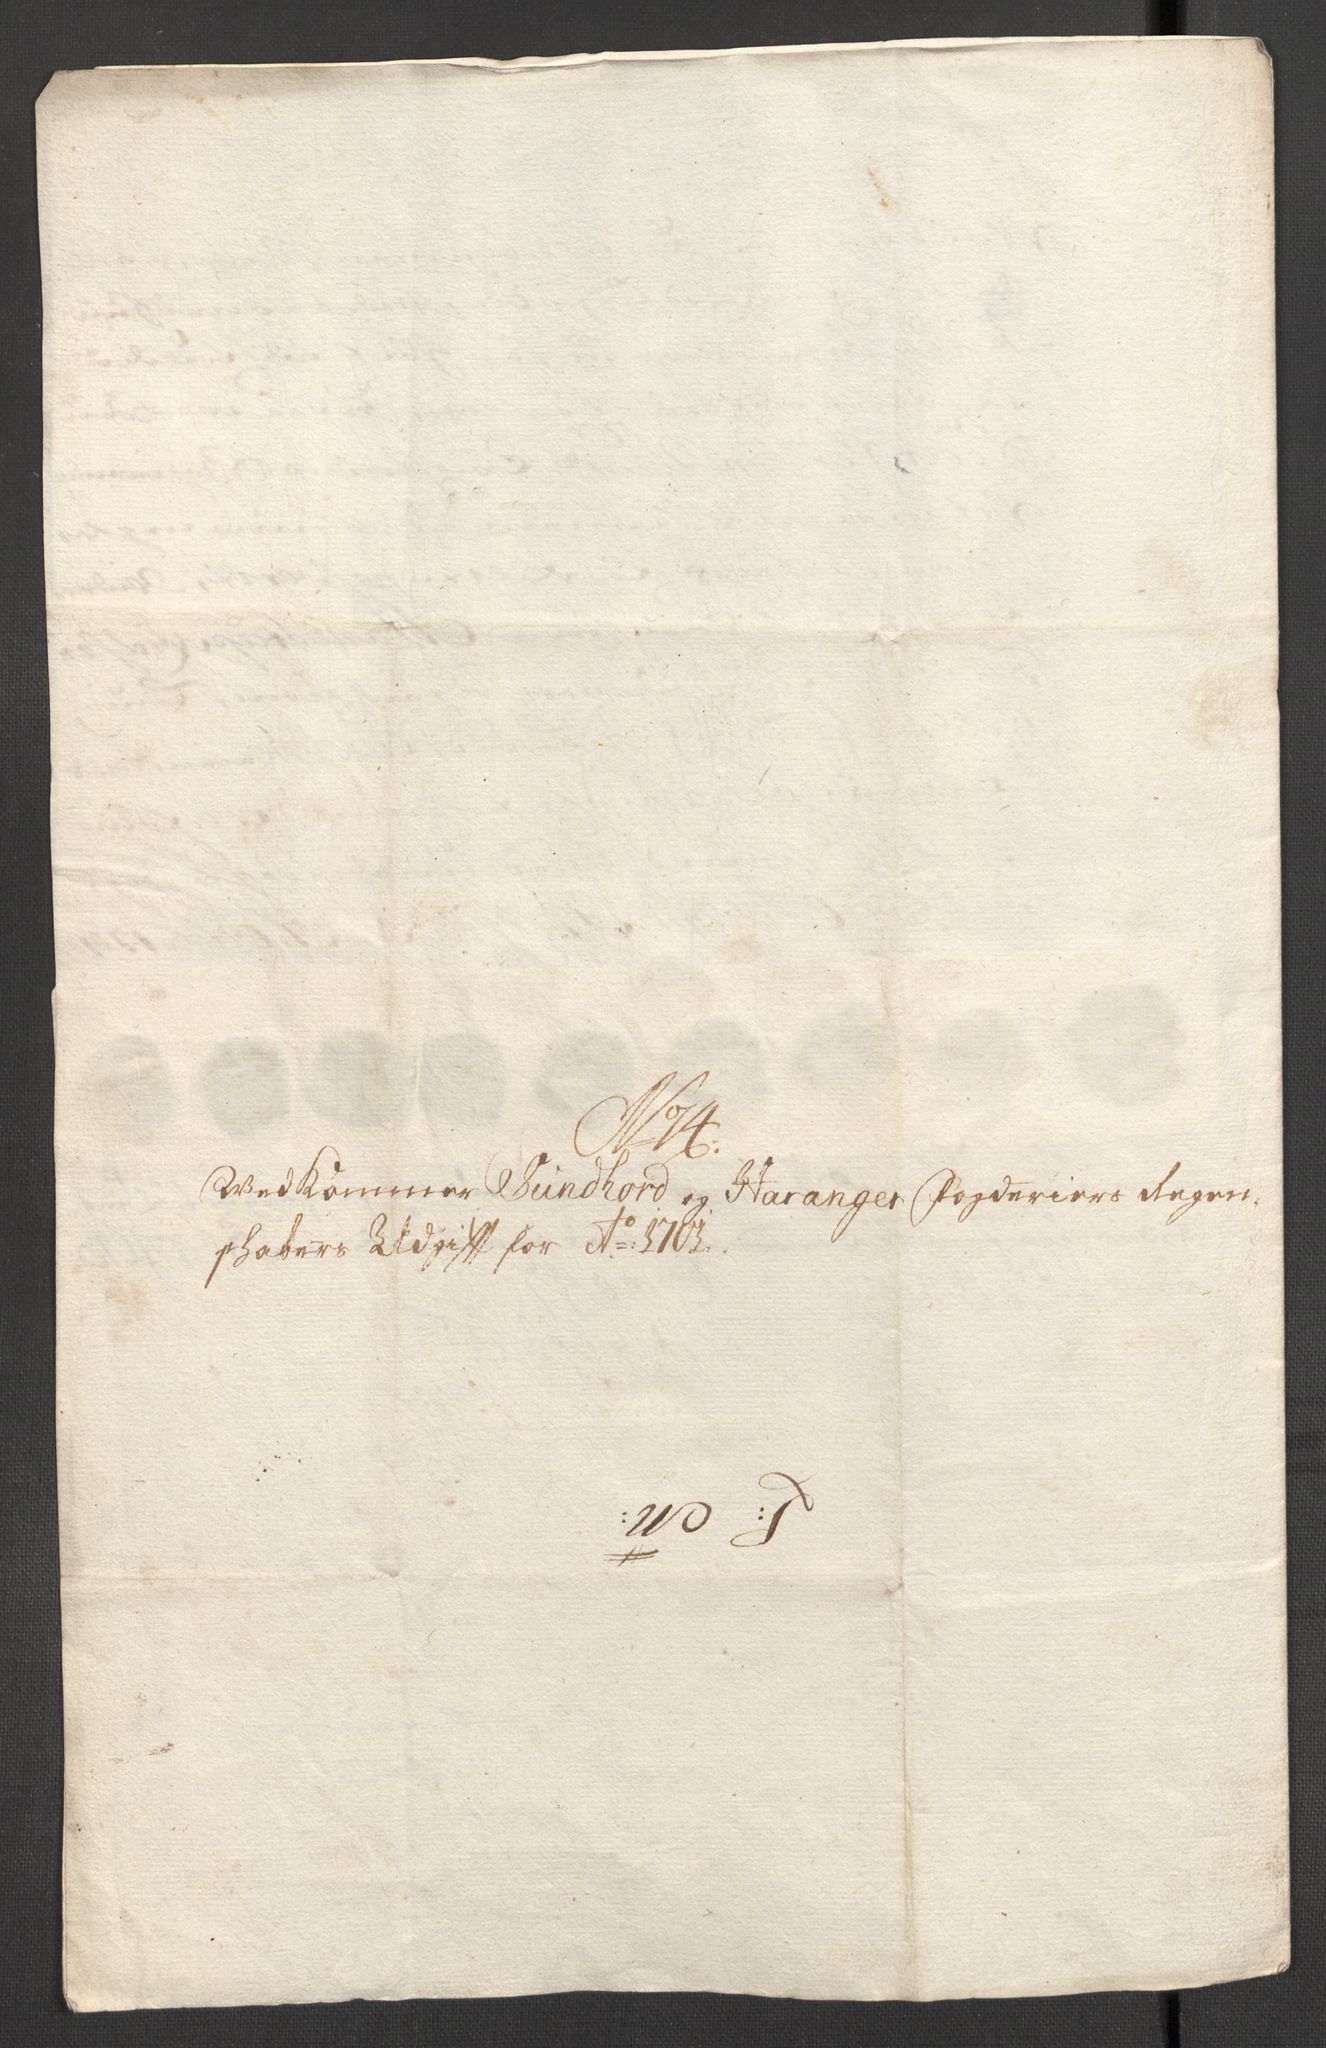 No 74:
Vedkommer Sundhord og Haranger Fogderiers Regen-
skabers Udgift for Ao: 1701.